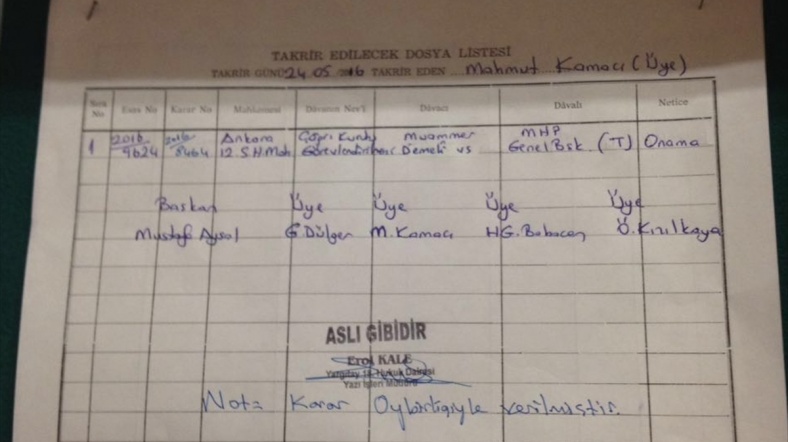 TAKRİR EDİLECEK DOSYA LİSTESİ
TAKRİR GÜNÜ 24.05.2016 TAKRİR EDEN Mahmut Kamacı (Üye)
Sıra No Esas No Karar No Mahkemesi Dâvanın Nev'i Dâvacı Dâvalı Netice
1 2016 2016 Ankara Çağrı Kurulu Muammer MHP
9624 8464 12.S.H.Mah Görevlendirilmesi Demeli vs Genel Bşk. (T) Onama
Başkan Üye Üye Üye Üye
Mustafa Aysal G.Dülger M.Kamacı HG.Babacan Ö.Kızılkaya
ASLI GİBİDİR
Erol KALE
Yargıtay 18. Hukuk Dairesi
Yazı İşleri Müdürü
Not= Karar Oybirliğiyle verilmiştir.